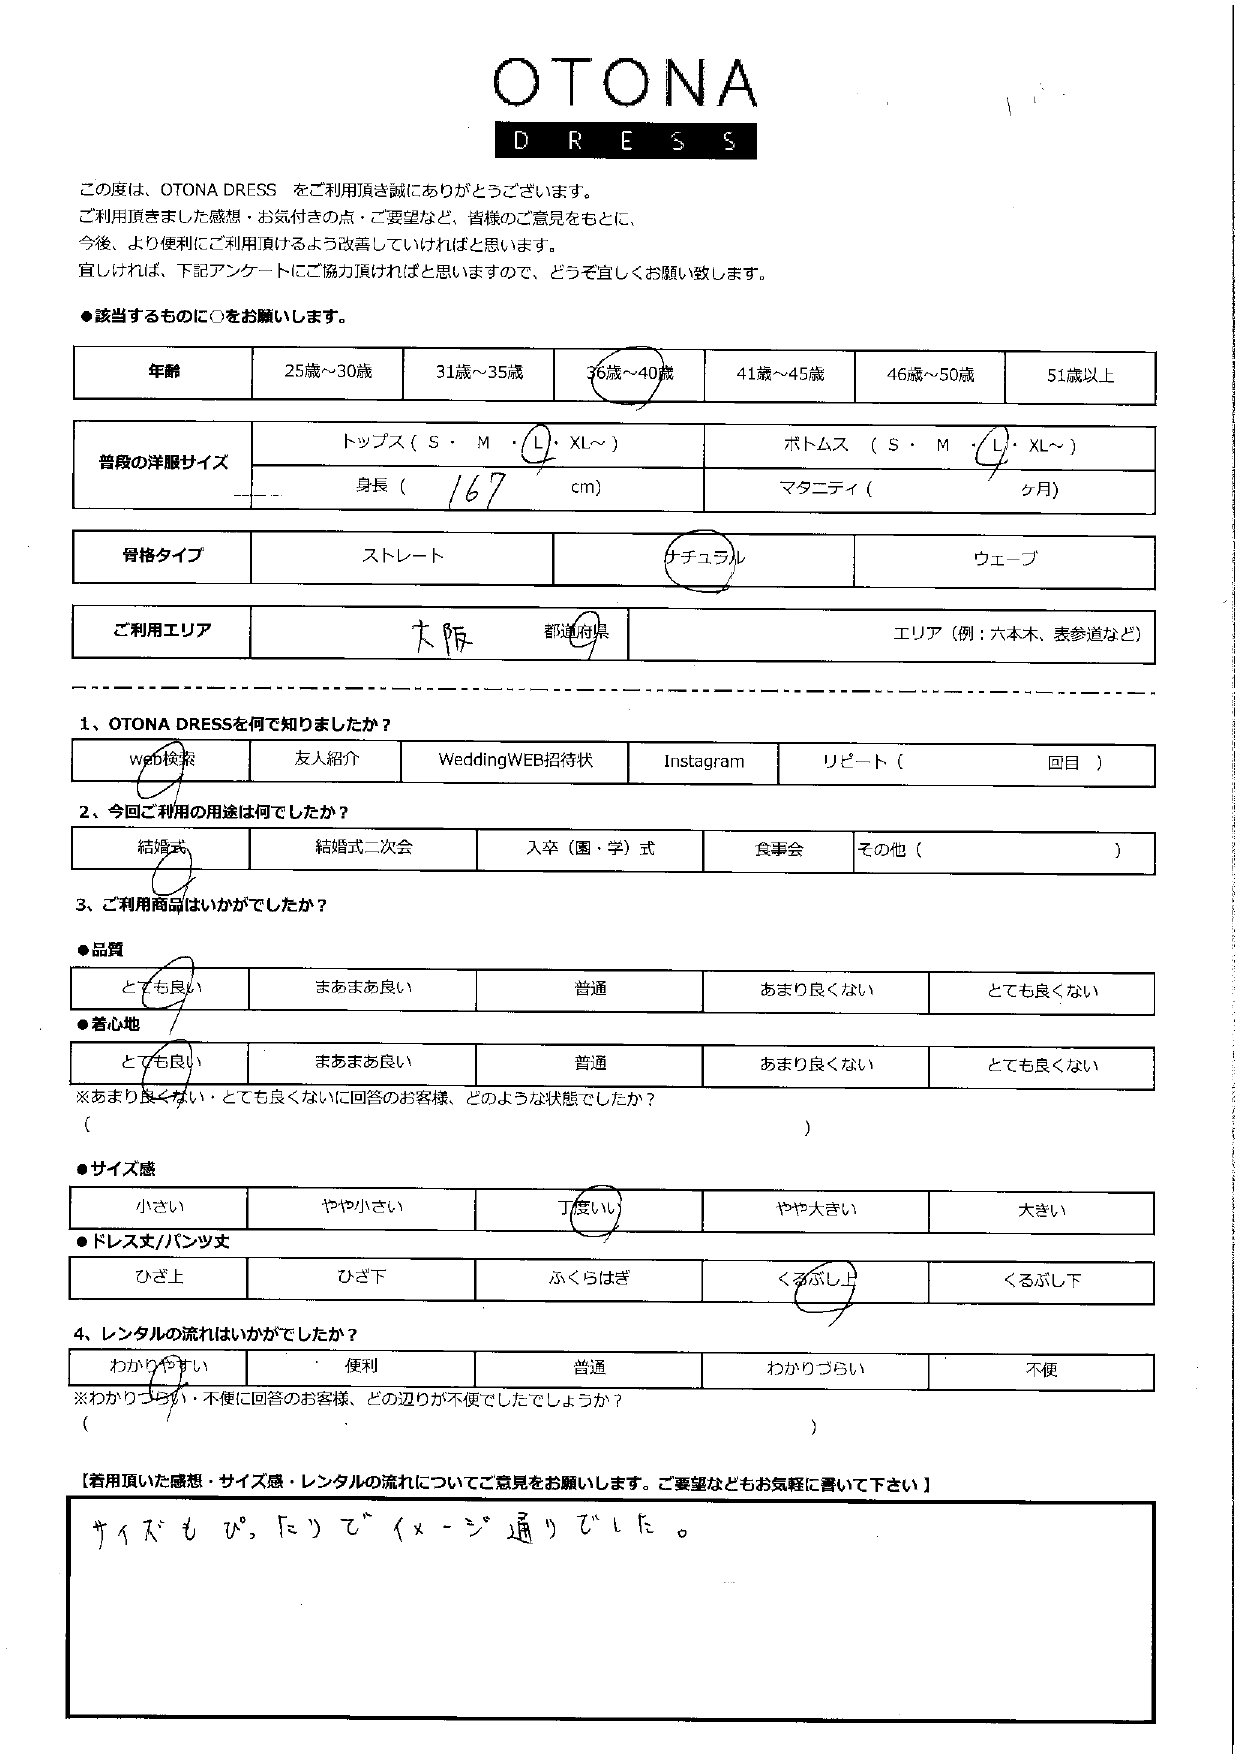 OTONA
DRESS
この度は、OTONA DRESS　をご利用頂き誠にありがとうございます。
ご利用頂きました感想・お気付きの点・ご要望など、皆様のご意見をもとに、
今後、より便利にご利用頂けるよう改善していければと思います。
宜しければ、下記アンケートにご協力頂ければと思いますので、どうぞ宜しくお願い致します。
●該当するものに○をお願いします。
年齢 25歳～30歳 31歳～35歳 36歳～40歳 41歳～45歳 46歳～50歳 51歳以上
普段の洋服サイズ トップス ( S ・ M ・ L ・ XL～ ) ボトムス ( S ・ M ・ L ・ XL～ )
身長 ( 167 cm) マタニティ ( ヶ月)
骨格タイプ ストレート ナチュラル ウェーブ
ご利用エリア 大阪 都道府県 エリア（例：六本木、表参道など）
1、OTONA DRESSを何で知りましたか？
web検索 友人紹介 WeddingWEB招待状 Instagram リピート ( 回目 )
2、今回ご利用の用途は何でしたか？
結婚式 結婚式二次会 入卒（園・学）式 食事会 その他 ( )
3、ご利用商品はいかがでしたか？
●品質
とても良い まあまあ良い 普通 あまり良くない とても良くない
●着心地
とても良い まあまあ良い 普通 あまり良くない とても良くない
※あまり良くない・とても良くないに回答のお客様、どのような状態でしたか？
( )
●サイズ感
小さい やや小さい 丁度いい やや大きい 大きい
●ドレス丈/パンツ丈
ひざ上 ひざ下 ふくらはぎ くるぶし上 くるぶし下
4、レンタルの流れはいかがでしたか？
わかりやすい 便利 普通 わかりづらい 不便
※わかりづらい・不便に回答のお客様、どの辺りが不便でしたでしょうか？
( )
【着用頂いた感想・サイズ感・レンタルの流れについてご意見をお願いします。ご要望などもお気軽に書いて下さい】
サイズもぴったりでイメージ通りでした。